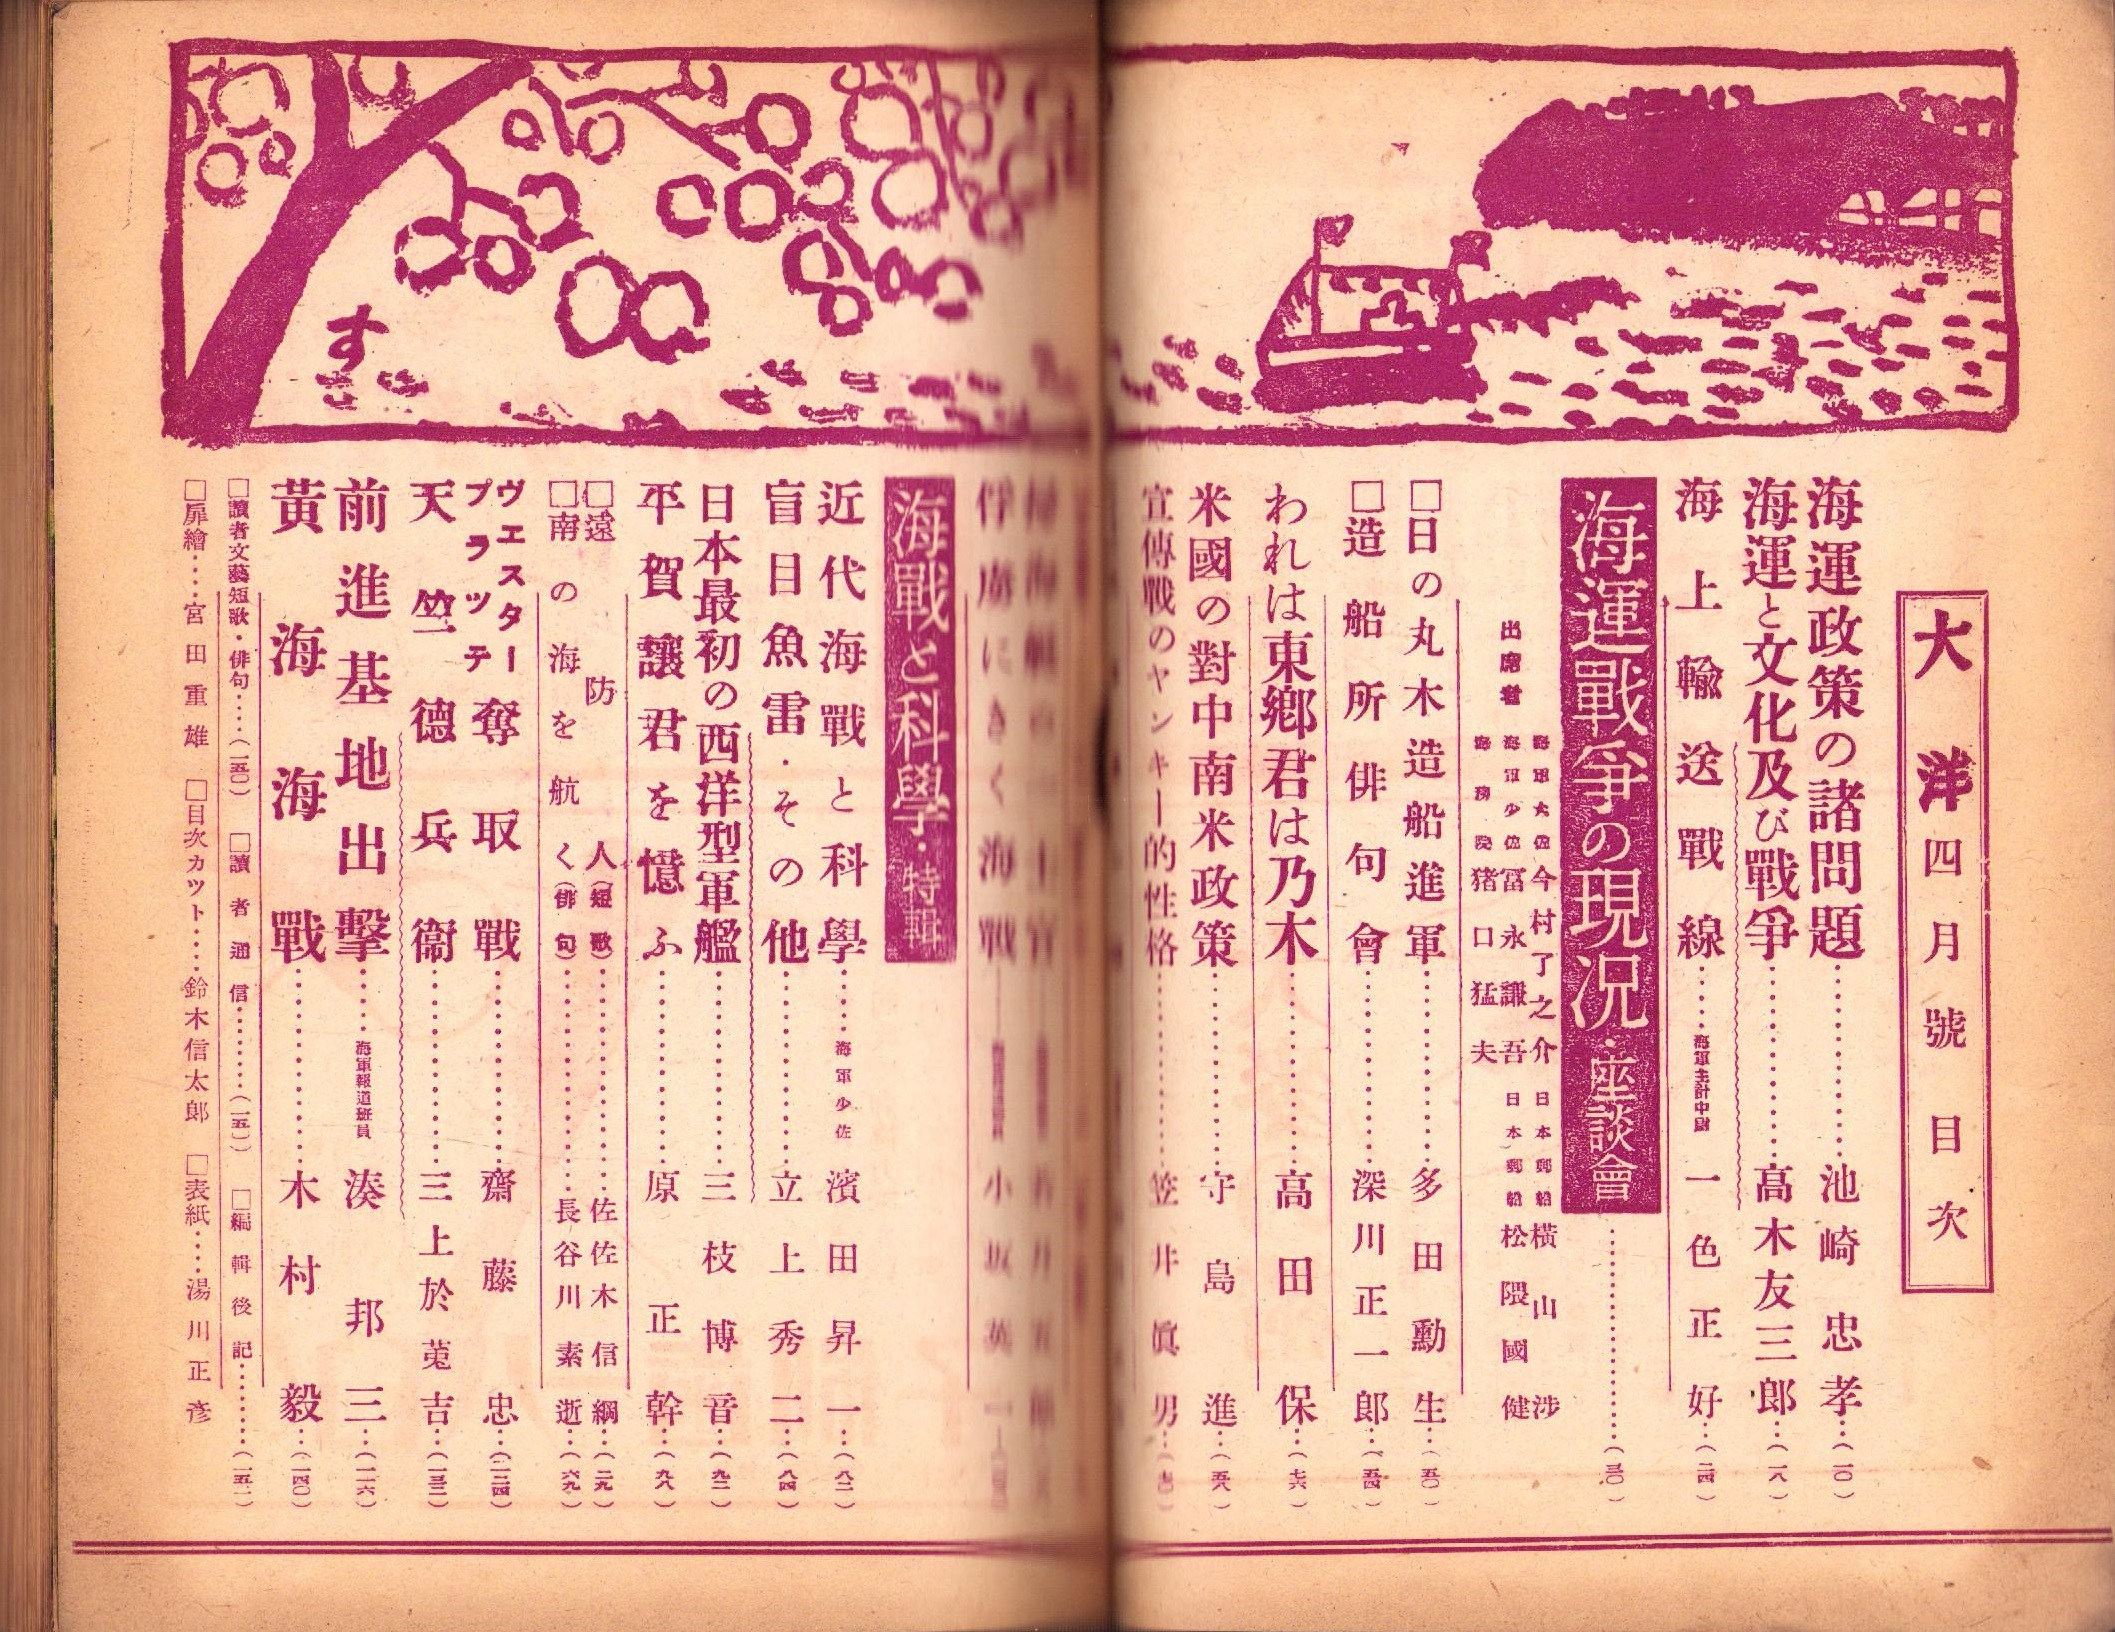 大洋四月號目次
海運政策の諸問題…………池崎忠孝…(一〇)
海運と文化及び戰爭…………高木友三郎…(一八)
海上輸送戰線……海軍主計中尉 一色正好…(二四)
海運戰爭の現況・座談會…………(三〇)
出席者
海軍大佐 今村了之介 日本郵船 横山涉
海軍少佐 冨永謙吾 日本郵船 松隈國健
海務院 猪口猛夫
□日の丸木造船進軍…………多田勳生…(五〇)
□造船所俳句會…………深川正一郎…(五四)
われは東鄉君は乃木…………高田保…(七六)
米國の對中南米政策…………守島進…(五八)
宣傳戰のヤンキー的性格…………笠井眞男
俘虜にきく海戰
小坂英一
海戰と科學・特輯
近代海戰と科學……海軍少佐 濱田昇一…(八二)
盲目魚雷・その他…………立上秀二…(八四)
日本最初の西洋型軍艦…………三枝博音…(九二)
平賀讓君を憶ふ…………原正幹…(九八)
□遠防人(短歌)…………佐佐木信綱…(二九)
□南の海を航く(俳句)…………長谷川素逝…(六九)
ヴエスタープラッテ奪取戰…………齋藤忠…(一二四)
天竺德兵衞…………三上於菟吉…(一三二)
前進基地出擊……海軍報道班員 湊邦三…(一一六)
黃海海戰…………木村毅…(一四〇)
□讀者文藝短歌・俳句……(一五〇) □讀者通信…………(一五一) □編輯後記…………(一五二)
□扉繪……宮田重雄 □目次カツト……鈴木信太郎 □表紙……湯川正彥
す